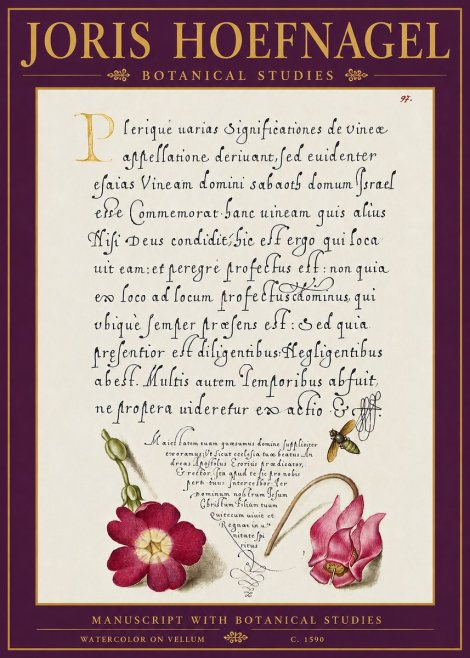 JORIS HOEFNAGEL
BOTANICAL STUDIES
97.
Plerique uarias Significationes de vineæ
appellatione deriuant, sed euidenter
esaias Vineam domini sabaoth domum Israel
esse Commemorat hanc uineam quis alius
Nisi Deus condidit, hic est ergo qui loca
uit eam: et peregre profectus est: non quia
ex loco ad locum profectus dominus, qui
vbique semper præsens est: Sed quia
presentior est diligentibus. Negligentibus
abest. Multis autem Temporibus abfuit,
ne propera uideretur ex actio. &
Maiestatem tuam quæsumus domine suppliciter
exoramus: Vt sicut ecclesia tuæ beatus An
dreas Apostolus Exorius prædicator,
& rector, ita apud te sit pro nobis
perpetuus Intercessor. Per
Dominum nostrum Iesum
Christum filium tuum
Qui tecum uiuit et
Regnat in u
nitate spi
ritus
MANUSCRIPT WITH BOTANICAL STUDIES
WATERCOLOR ON VELLUM C. 1590